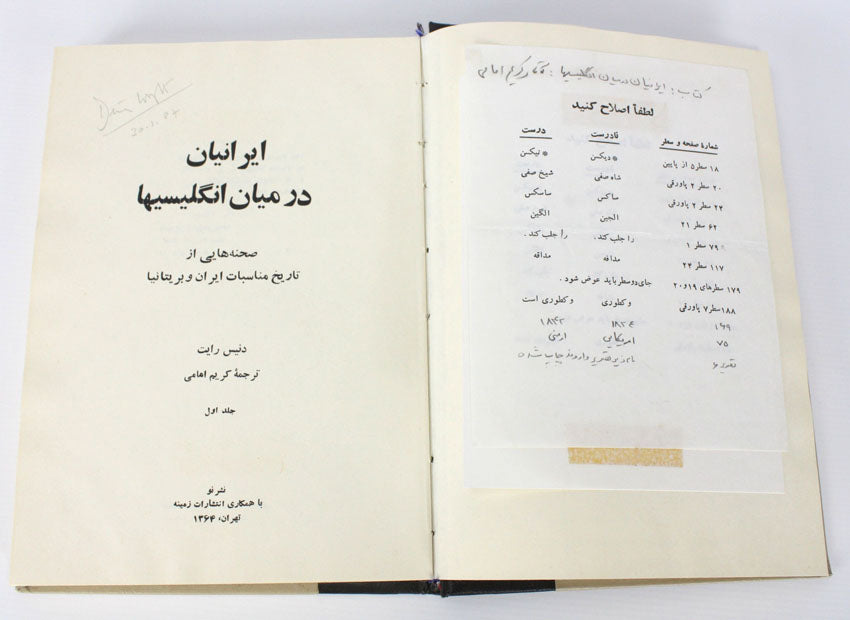 کتاب: ایرانیان در میان انگلیسیها: کریم امامی
لطفاً اصلاح کنید
شمارهٔ صفحه و سطر نادرست درست
۱۸ سطر ۵ از پایین * دیکسن * نیکسن
۲۰ سطر ۲ پاورقی شاه صفی شیخ صفی
۲۴ سطر ۲ پاورقی ساکس ساسکس
۶۲ سطر ۲۱ الجین الگین
۷۹ سطر ۱ را جلب کند. را جلب کند.
۱۱۷ سطر ۲۴ مدافه مدافه
۱۷۹ سطرهای ۱۹ و ۲۰ جای دو سطر باید عوض شود.
۱۸۸ سطر ۷ پاورقی و کطوری و کطوری است
۱۶۹ ۱۸۲۴ ۱۸۴۲
۷۵ امریکایی ارمنی
چاپ شده
Denis Wright
ایرانیان
در میان انگلیسیها
صحنه‌هایی از
تاریخ مناسبات ایران و بریتانیا
دنیس رایت
ترجمهٔ کریم امامی
جلد اول
نشر نو
با همکاری انتشارات زمینه
تهران، ۱۳۶۴